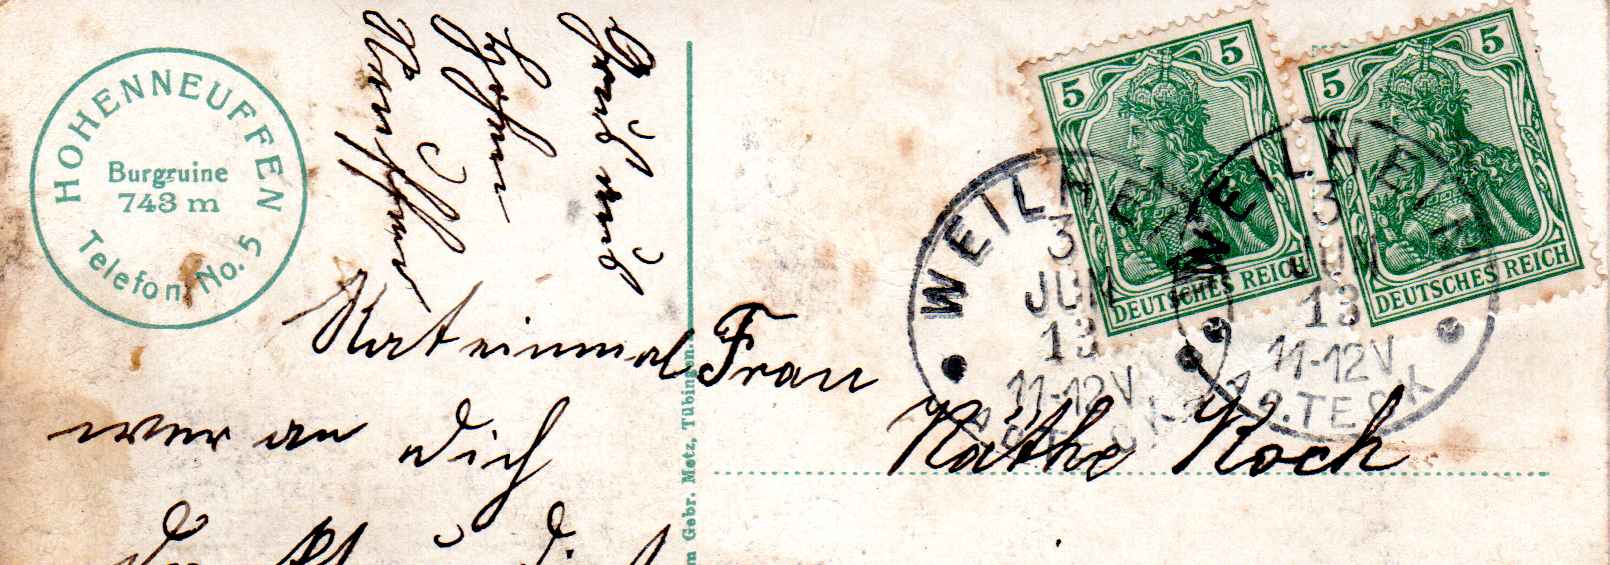 HOHENNEUFFEN
Burgruine
743 m
Telefon No. 5
Gruß und
Rat einmal
wer an Dich
m Gebr. Metz, Tübingen.
Frau
Käthe Koch
5 5
DEUTSCHES REICH
5 5
DEUTSCHES REICH
WEILHEIM
3
JUN
13
11-12V
WEILHEIM
3
JUN
13
11-12V
A.D.TECK